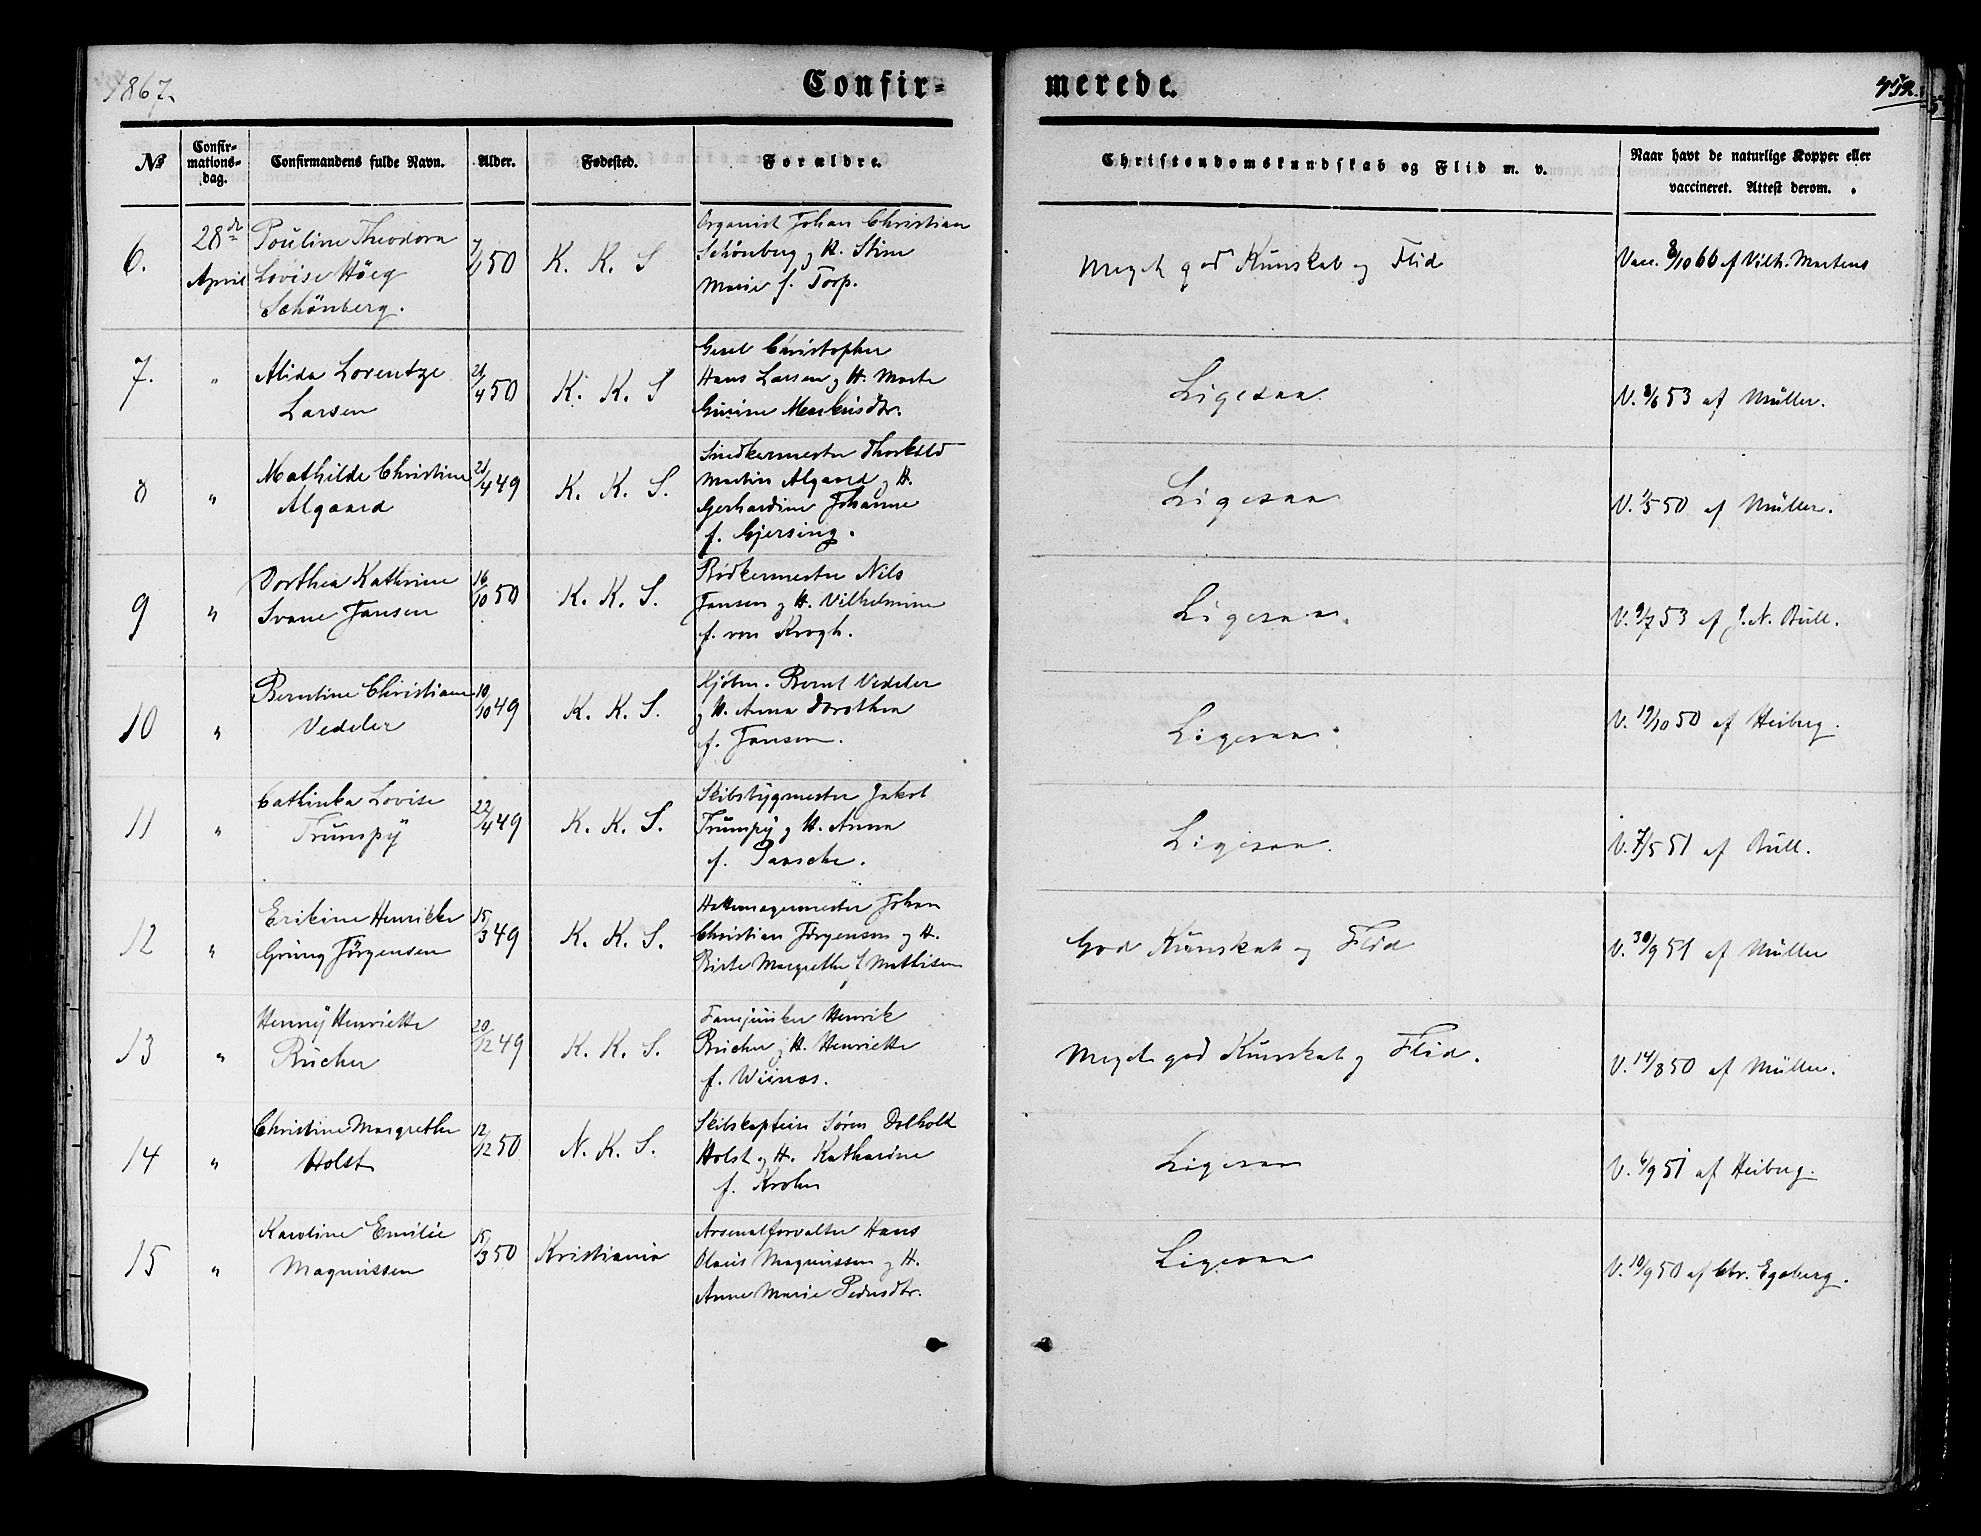 1867.
Confir-
merede.
452.
No
Confir-
mations-
dag.
Confirmandens fulde Navn.
Alder.
Fødested.
Forældre.
Christendomskundskab og Flid m. v.
Naar havt de naturlige Kopper eller
vaccineret. Attest derom.
6.
28de
April
Pouline Theodora
Lovise Höeg
Schönberg.
50
K. K. S
Organist Johan Christian
Schönberg og H. Stine
Marie f. Torp.
Meget god Kunskab og Flid
Vacc. 8/10 66 af Vilh. Martens
7.
"
Alida Lorentze
Larsen
21/4 50
K. K. S
Gesel Christopher
Hans Larsen og H. Marte
Gurine
Ligesaa
V. 8/6 53 af Müller.
8
"
Mathilde Christine
Algaard
21/4 49
K. K. S.
Snedkermester Thorkild
Martin Algaard og H.
Gerhardine Johanne
f. Gjersing.
Ligesaa
V. 50 af Müller.
9
"
Dorthea Kathrine
Svane Jansen
16/10 50
K. K. S.
Bödkermester Nils
Jansen og H. Vilhelmine
f. von Krogh.
Ligesaa.
V. 9/7 53 af J. N. Bull.
10
"
Berntine Christiane
Vedeler
10/10 49
K. K. S.
Kjöbm. Bernt Vedeler
og H. Anna Dorothea
f. Jansen.
Ligesaa.
V. 19/10 50 af Heiberg.
11
"
Cathinka Lovise
Trumpÿ
22/4 49
K. K. S.
Skibsbygmester Jakob
Trumpÿ og H. Anna
f. Paasche.
Ligesaa.
V. 7/5 51 af Bull.
12
"
Erikine Henrikke
Grüng Jörgensen
15/3 49
K. K. S.
Hattemagermester Johan
Christian Jörgensen og H.
Birte Margrethe f. Mathisen
God Kunskab og Flid
V. 30/9 51 af Müller
13
"
Hennÿ Henriette
Bücher
20/12 49
K. K. S.
Fanejunker Henrik
Bücher og H. Henriette
f.
Meget god Kunskab og Flid.
V. 14/8 50 af Müller.
14
"
Christine Margrethe
Holst
12/12 50
N. K. S.
Skibskaptein Sören
Holst og H. Katharine
f. Krohn
Ligesaa
V. 6/9 51 af Heiberg.
15
"
Karoline Emilie
Magnussen
15/3 50
Kristiania
Arsenalforvalter Hans
Olaus Magnussen og H.
Anne Marie Pedersdtr.
Ligesaa
V. 10/9 50 af Chr. Egeberg.